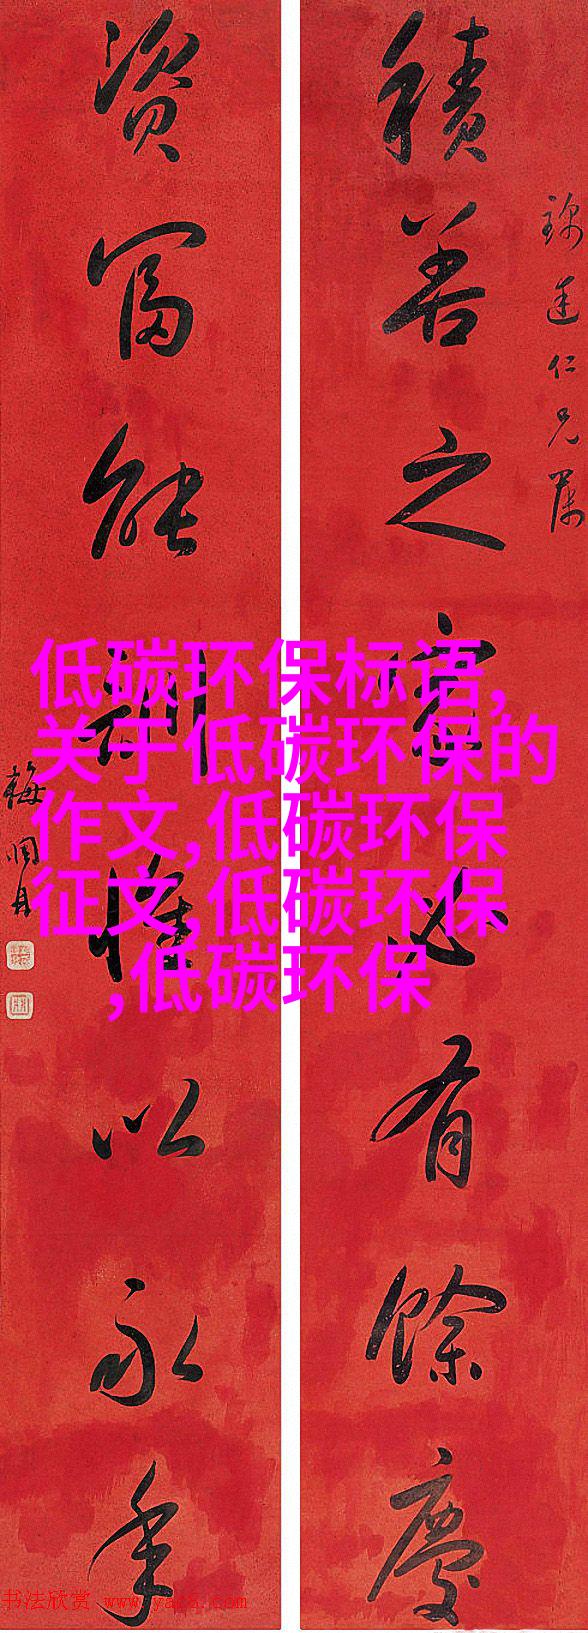 積善之家必有餘慶
仁兄屬
資富能訓惟以永年
梅調鼎
低碳环保标语,
关于低碳环保的
作文,低碳环保
征文,低碳环保
,低碳环保
书法欣赏 www.yac8.com